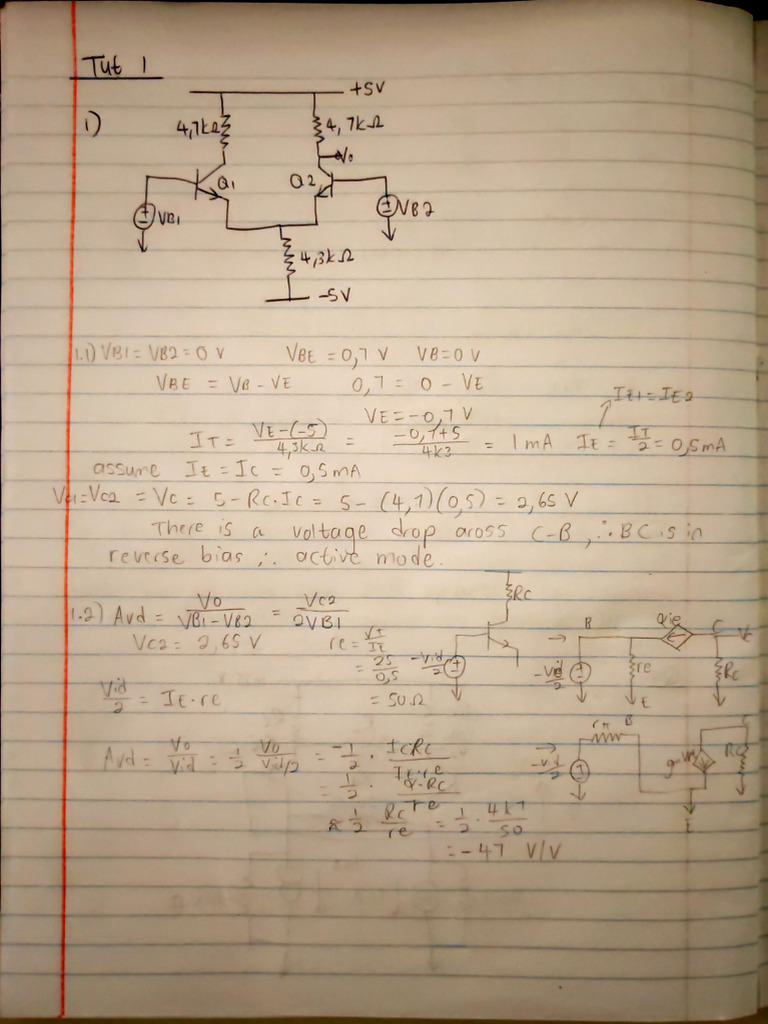 Tut 1
1)
+5V
4,7kΩ
4,7kΩ
Vo
Q1
Q2
VB1
VB2
4,3kΩ
-5V
1.1) VB1 = VB2 = 0 V VBE = 0,7 V VB=0 V
VBE = VB - VE 0,7 = 0 - VE
IE1 = IE2
VE = -0,7 V
IT = VE-(-5)/4,3kΩ = -0,7+5/4k3 = 1mA IE = IT/2 = 0,5mA
assume IE = IC = 0,5mA
VC1=VC2 = VC = 5 - RC.IC = 5 - (4,7)(0,5) = 2,65 V
There is a voltage drop aross C-B, ∴ BC is in
reverse bias ∴ active mode.
1.2) Avd = Vo/VB1-VB2 = VC2/2VB1
VC2 = 2,65 V re = VT/IE
= 25/0,5
= 50Ω
Vid/2 = IE.re
RC
-Vid/2
B αie C Vc
-Vid/2 re RC
E
Avd = Vo/Vid = 1/2 Vo/Vid/2 = -1/2 . ICRC/IE.re
= 1/2 . α.RC/re
≈ 1/2 RC/re = 1/2 . 4k7/50
= -47 V/V
rπ B C
-Vid/2 RC